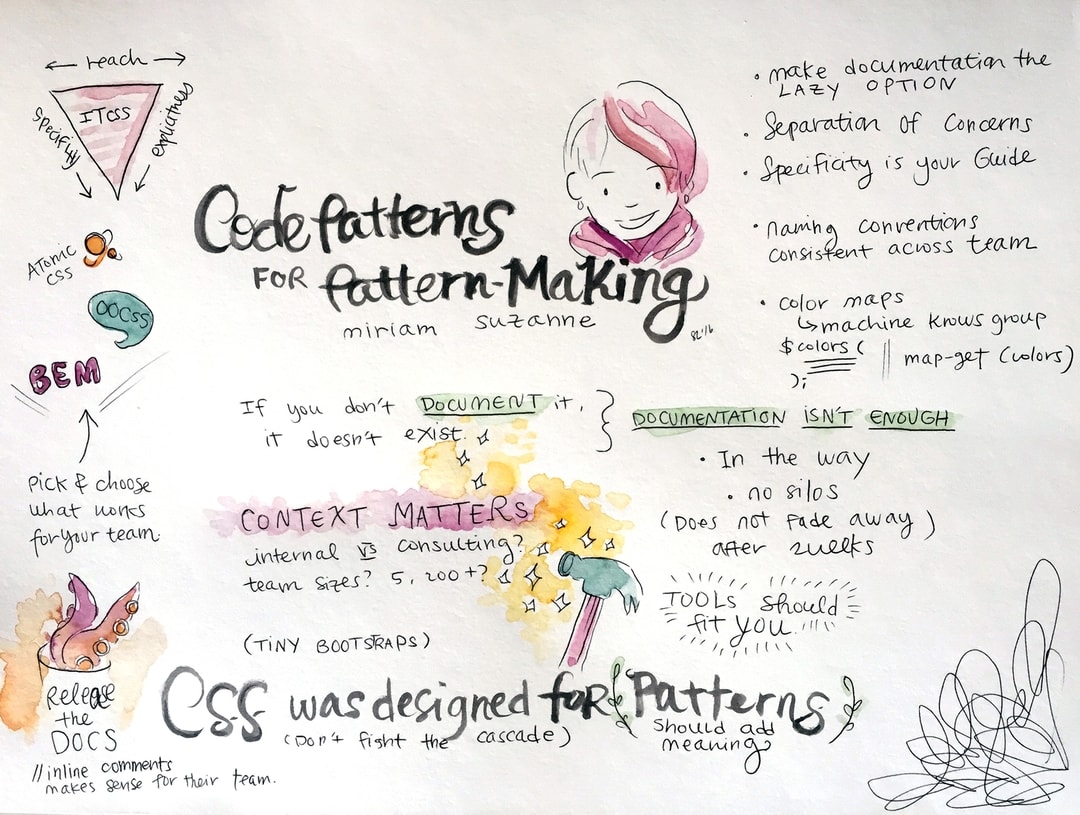 ← reach →
ITCSS
specifity
explicitness
ATOMIC
CSS
OOCSS
BEM
Pick & choose
what works
for your team
Release
the
DOCS
//inline comments
makes sense for their team.
Code Patterns
FOR Pattern-Making
miriam suzanne
If you don't DOCUMENT it,
it doesn't exist.
CONTEXT MATTERS
internal vs consulting?
team sizes? 5, 200+?
(TINY BOOTSTRAPS)
CSS was designed for Patterns
(Don't fight the cascade)
should add
meaning
• make documentation the
LAZY OPTION
• Separation of Concerns
• Specificity is your Guide
• naming conventions
consistent across team
• color maps
↳ machine knows group
$colors (
);
|| map-get (colors)
DOCUMENTATION ISN'T ENOUGH
• In the way
• no silos
(Does not Fade away)
after 2weeks
TOOLS should
fit you.